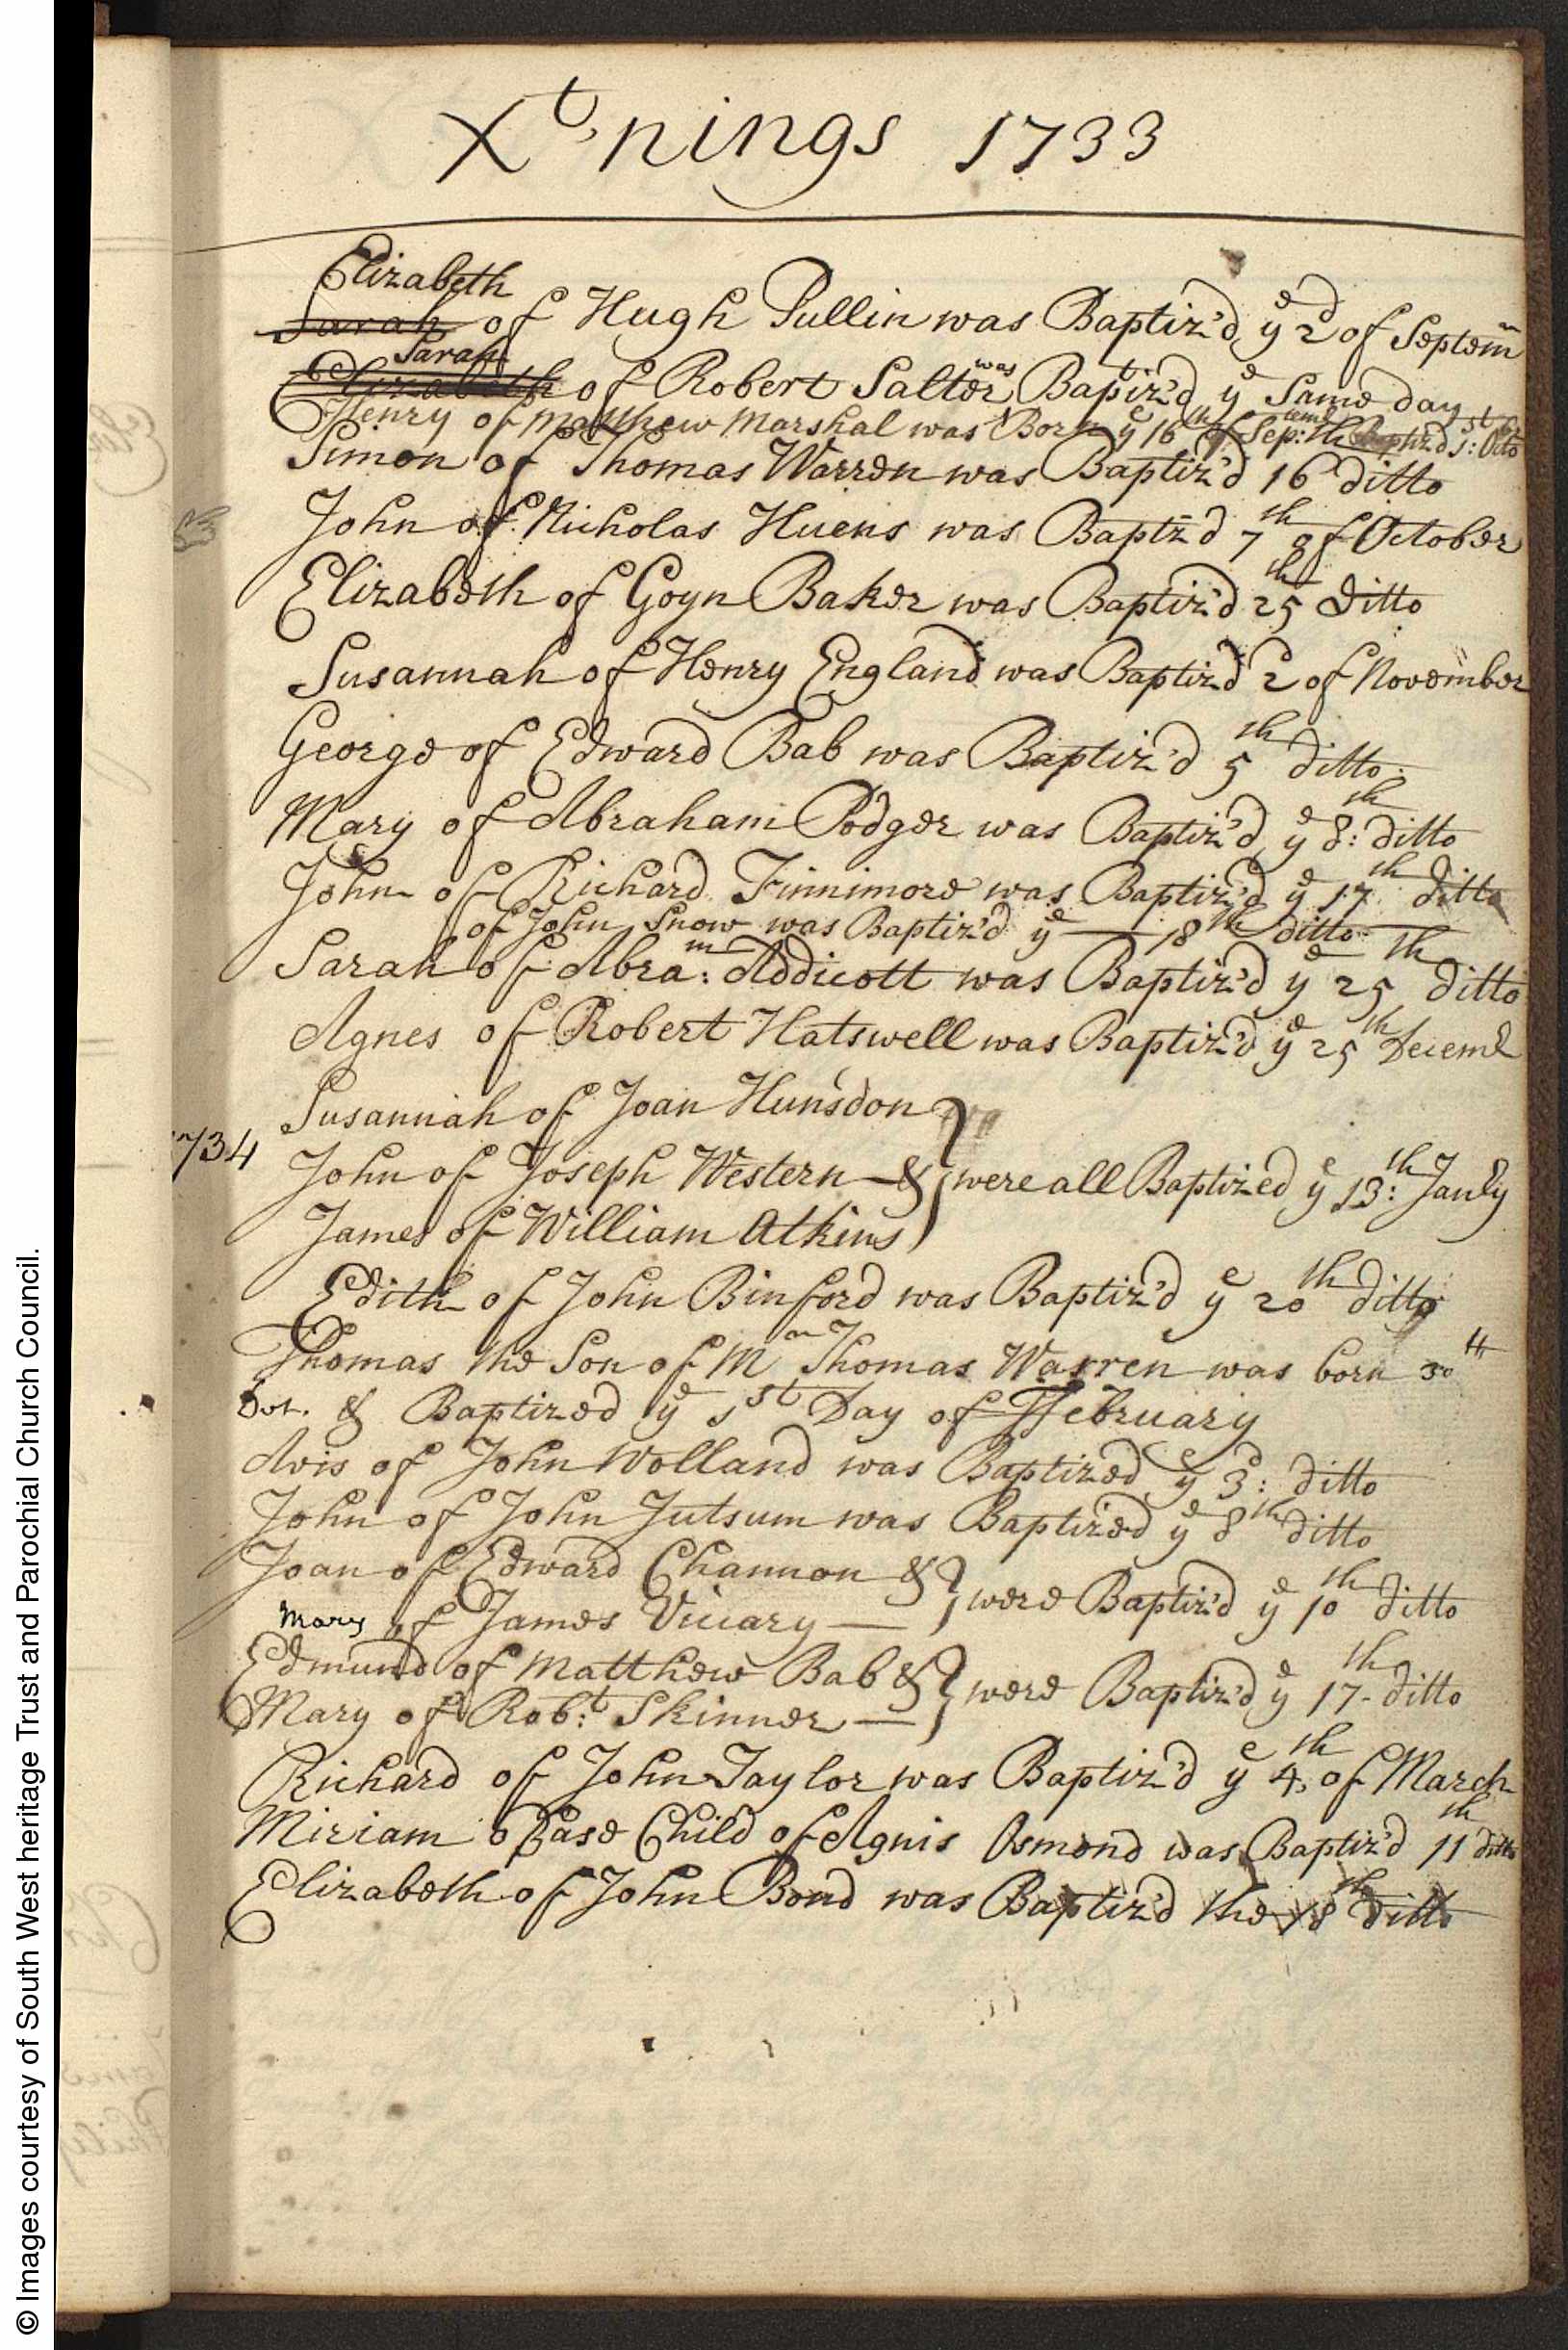 Xt,nings 1733
Elizabeth
Sarah of Hugh Pullin was Baptiz'd ye 2d of Septem
Sarah
Elizabeth of Robert Salter was Baptiz'd ye Same day
Henry of Matthew Marshal was Born ye 16th of Sep:temb Baptiz'd 1st: Octo
Simon of Thomas Warren was Baptiz'd 16th ditto
John of Nicholas Huens was Baptz'd 7th of October
Elizabeth of Goyn Baker was Baptiz'd 25th ditto
Susannah of Henry England was Baptiz'd 2d of November
George of Edward Bab was Baptiz'd 5th ditto
Mary of Abraham Podger was Baptiz'd ye 8th: ditto
John of Richard Finnimore was Baptiz'd ye 17th ditto
of John Snow was Baptiz'd ye — 18th ditto
Sarah of Abra:m Addicott was Baptiz'd ye 25th ditto
Agnes of Robert Hatswell was Baptiz'd ye 25th Decemb
Susannah of Joan Hunsdon
1734 John of Joseph Western & were all Baptized ye 13:th Janry
James of William Atkins
Edith of John Binford was Baptiz'd ye 20th ditto
Thomas the Son of Mr Thomas Warren was born 30th
Oct. & Baptized ye 1st Day of February
Avis of John Wolland was Baptized ye 3d: ditto
John of John Jutsum was Baptized ye 8th ditto
Joan of Edward Channon & were Baptiz'd ye 10th ditto
Mary of James Vicary —
Edmund of Matthew Bab & were Baptiz'd ye 17th ditto
Mary of Rob:t Skinner —
Richard of John Taylor was Baptiz'd ye 4th of March
Miriam Base Child of Agnis Osmond was Baptiz'd 11th ditto
Elizabeth of John Bond was Baptiz'd the 18th ditto
© Images courtesy of South West heritage Trust and Parochial Church Council.